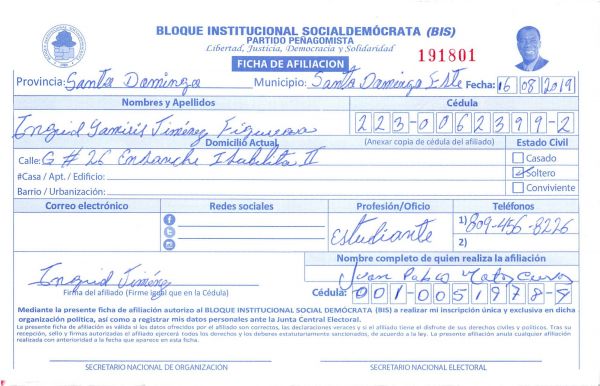 BLOQUE INSTITUCIONAL SOCIALDEMÓCRATA (BIS)
PARTIDO PEÑAGOMISTA
Libertad, Justicia, Democracia y Solidaridad
FICHA DE AFILIACION
191801
Provincia: Santo Domingo Municipio: Santo Domingo Este Fecha: 16 08 2019
Nombres y Apellidos Cédula
Ingrid Yamisis Jiménez Figuereo 223-0062399-2
Domicilio Actual (Anexar copia de cédula del afiliado) Estado Civil
Calle: G # 26 Ensanche Isabelita II Casado
#Casa / Apt. / Edificio: Soltero
Barrio / Urbanización: Conviviente
Correo electrónico Redes sociales Profesión/Oficio Teléfonos
Estudiante 1) 809-456-8226
2)
Nombre completo de quien realiza la afiliación
Ingrid Jiménez Juan Pablo
Firma del afiliado (Firma igual que en la Cédula) Cédula: 001-0051978-9
Mediante la presente ficha de afiliación autorizo al BLOQUE INSTITUCIONAL SOCIAL DEMÓCRATA (BIS) a realizar mi inscripción única y exclusiva en dicha
organización política, así como a registrar mis datos personales ante la Junta Central Electoral.
La presente ficha de afiliación es válida si los datos ofrecidos por el afiliado son correctos, las declaraciones veraces y si el afiliado tiene el disfrute de sus derechos civiles y políticos. Tras su
recepción, sello y firmas autorizadas el afiliado ejercerá todos los derechos y los deberes estatutariamente sancionados, de acuerdo a la ley. La presente afiliación anula cualquier afiliación
realizada con anterioridad a la fecha que aparece en esta ficha.
SECRETARIO NACIONAL DE ORGANIZACIÓN SECRETARIO NACIONAL ELECTORAL